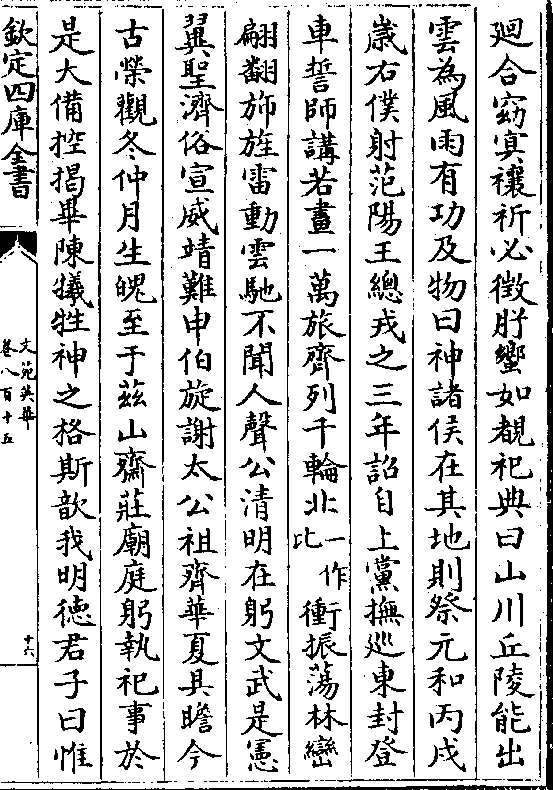 廻合窈㝠禳祈必徴肸蠁如覩祀典曰山川丘陵能出
雲為風雨有功及物曰神諸侯在其地則祭元和丙戌
嵗右僕射范陽王總戎之三年詔自上黨撫巡東封登
車誓師講若畫一萬旅齊列千輪北一作比衝振蕩林巒
翩翻斾旌雷動雲馳不聞人聲公清明在躬文武是憲
翼聖濟俗宣威靖難申伯旋謝太公祖齊華夏具瞻今
古榮觀冬仲月生魄至于兹山齋莊廟庭躬執祀事於
是大備控掲畢陳犧牲神之格斯歆我明徳君子曰惟
欽定四庫全書
文苑英華
卷八百十五
十六